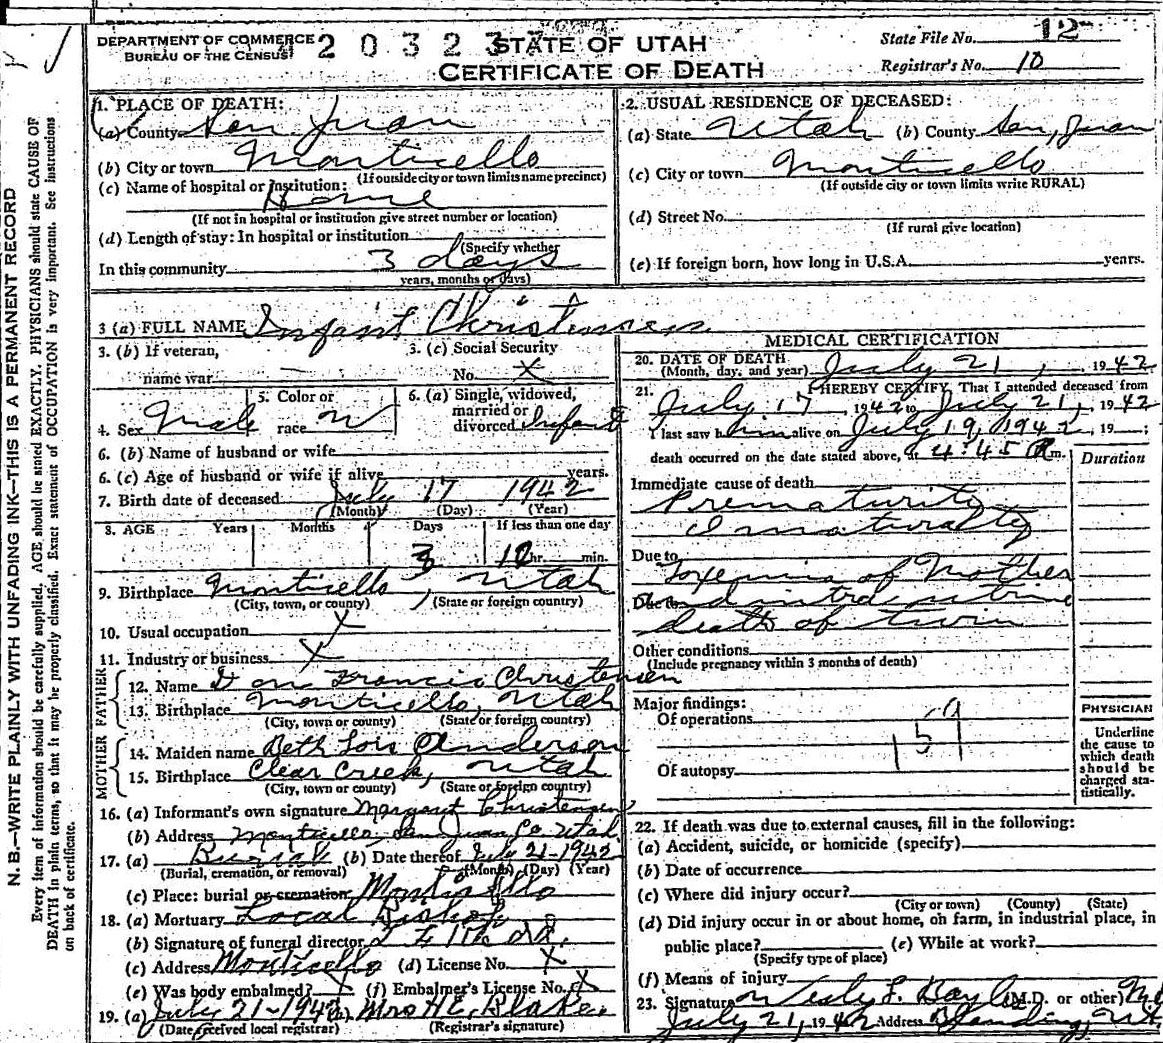 DEPARTMENT OF COMMERCE
BUREAU OF THE CENSUS
2 0 3 2 3
STATE OF UTAH
CERTIFICATE OF DEATH
State File No. 12
Registrar's No. 10
N. B.—WRITE PLAINLY WITH UNFADING INK—THIS IS A PERMANENT RECORD
Every item of information should be carefully supplied. AGE should be stated EXACTLY. PHYSICIANS should state CAUSE OF
DEATH in plain terms, so that it may be properly classified. Exact statement of OCCUPATION is very important. See instructions
on back of certificate.
1. PLACE OF DEATH:
(a) County San Juan
(b) City or town Monticello
(If outside city or town limits name precinct)
(c) Name of hospital or institution:
Home
(If not in hospital or institution give street number or location)
(d) Length of stay: In hospital or institution
(Specify whether
In this community 3 days
years, months or days)
2. USUAL RESIDENCE OF DECEASED:
(a) State Utah (b) County San Juan
(c) City or town Monticello
(If outside city or town limits write RURAL)
(d) Street No.
(If rural give location)
(e) If foreign born, how long in U.S.A. years.
3 (a) FULL NAME Infant Christensen
3. (b) If veteran,
name war
3. (c) Social Security
No. X
4. Sex Male
5. Color or
race W
6. (a) Single, widowed,
married or
divorced Infant
6. (b) Name of husband or wife
6. (c) Age of husband or wife if alive years.
7. Birth date of deceased July 17 1942
(Month) (Day) (Year)
8. AGE Years Months Days If less than one day
3 hr. min.
9. Birthplace Monticello, Utah
(City, town, or county) (State or foreign country)
10. Usual occupation X
11. Industry or business X
FATHER
12. Name Francis Christensen
13. Birthplace Monticello, Utah
(City, town or county) (State or foreign country)
MOTHER
14. Maiden name Beth Lois Anderson
15. Birthplace Clear Creek, Utah
(City, town or county) (State or foreign country)
16. (a) Informant's own signature Margaret Christensen
(b) Address Monticello, San Juan Co. Utah
17. (a) Burial (b) Date thereof July 21-1942
(Burial, cremation, or removal) (Month) (Day) (Year)
(c) Place: burial or cremation Monticello
18. (a) Mortuary Local Bishop
(b) Signature of funeral director
(c) Address Monticello (d) License No. X
(e) Was body embalmed? X (f) Embalmer's License No. X
19. (a) July 21-1942 (b) Mrs H.E. Blake
(Date received local registrar) (Registrar's signature)
MEDICAL CERTIFICATION
20. DATE OF DEATH
(Month, day, and year) July 21, 1942
21. I HEREBY CERTIFY, That I attended deceased from
July 17, 1942 to July 21, 1942
I last saw him alive on July 19, 1942, 19 ;
death occurred on the date stated above, at 4:45 m.
Duration
Immediate cause of death
Prematurity
Imaturity
Due to
Toxemia of Mother
Due to and intra uterine
death of twin
Other conditions
(Include pregnancy within 3 months of death)
Major findings:
Of operations
159
Of autopsy
PHYSICIAN
Underline
the cause to
which death
should be
charged sta-
tistically.
22. If death was due to external causes, fill in the following:
(a) Accident, suicide, or homicide (specify)
(b) Date of occurrence
(c) Where did injury occur?
(City or town) (County) (State)
(d) Did injury occur in or about home, on farm, in industrial place, in
public place? (e) While at work?
(Specify type of place)
(f) Means of injury
23. Signature L. (M.D. or other) MD
July 21, 1942 Address Blanding, Ut.